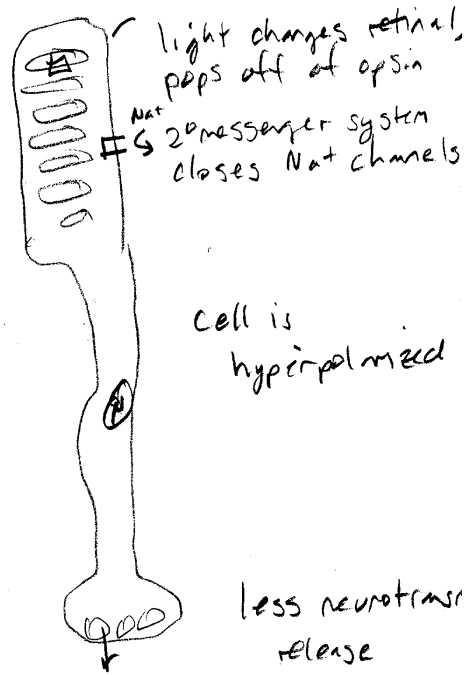 light changes retinal,
pops off of opsin
Na+
2° messenger system
closes Na+ channels
cell is
hyperpolarized
N
less neurotransm
release